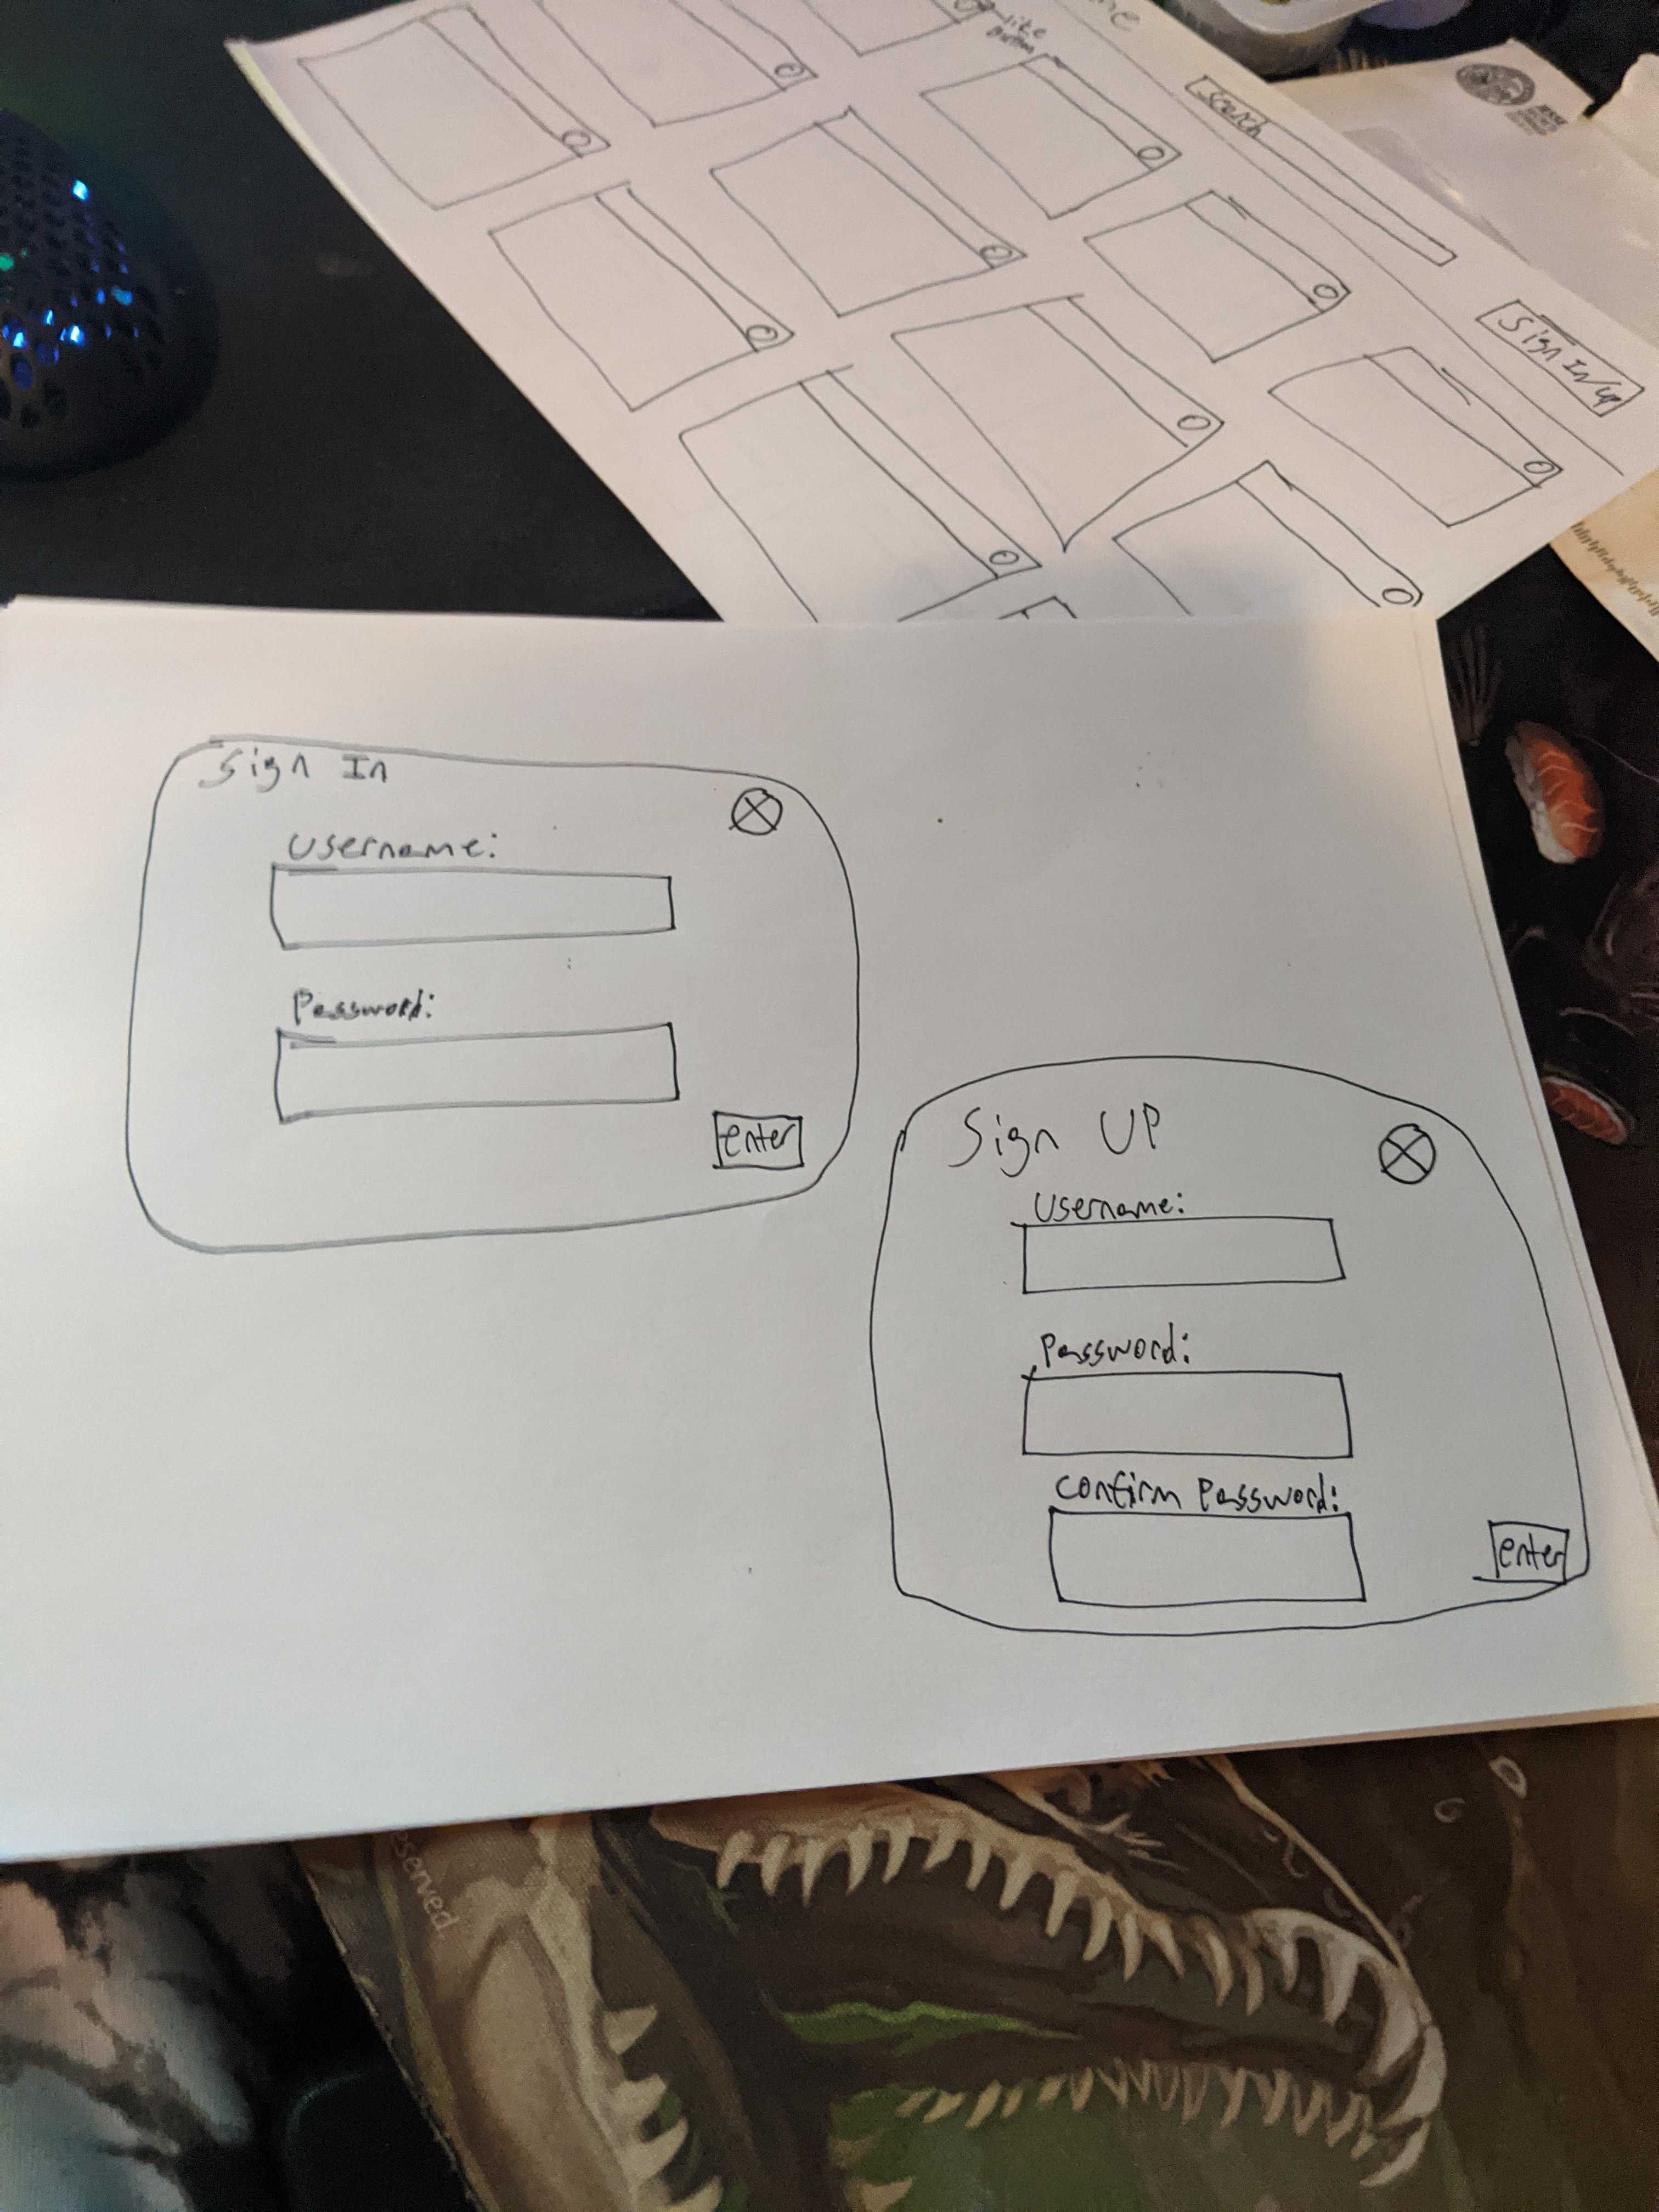 like
button
Search
Sign In/Up
Sign In
Username:
Password:
enter
Sign UP
Username:
Password:
Confirm Password:
enter
eserved